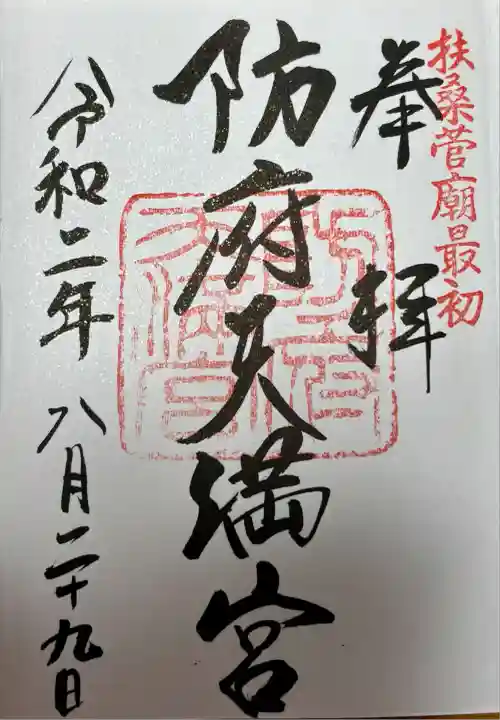 扶桑菅廟最初
奉拝
防府天満宮
令和二年八月二十九日